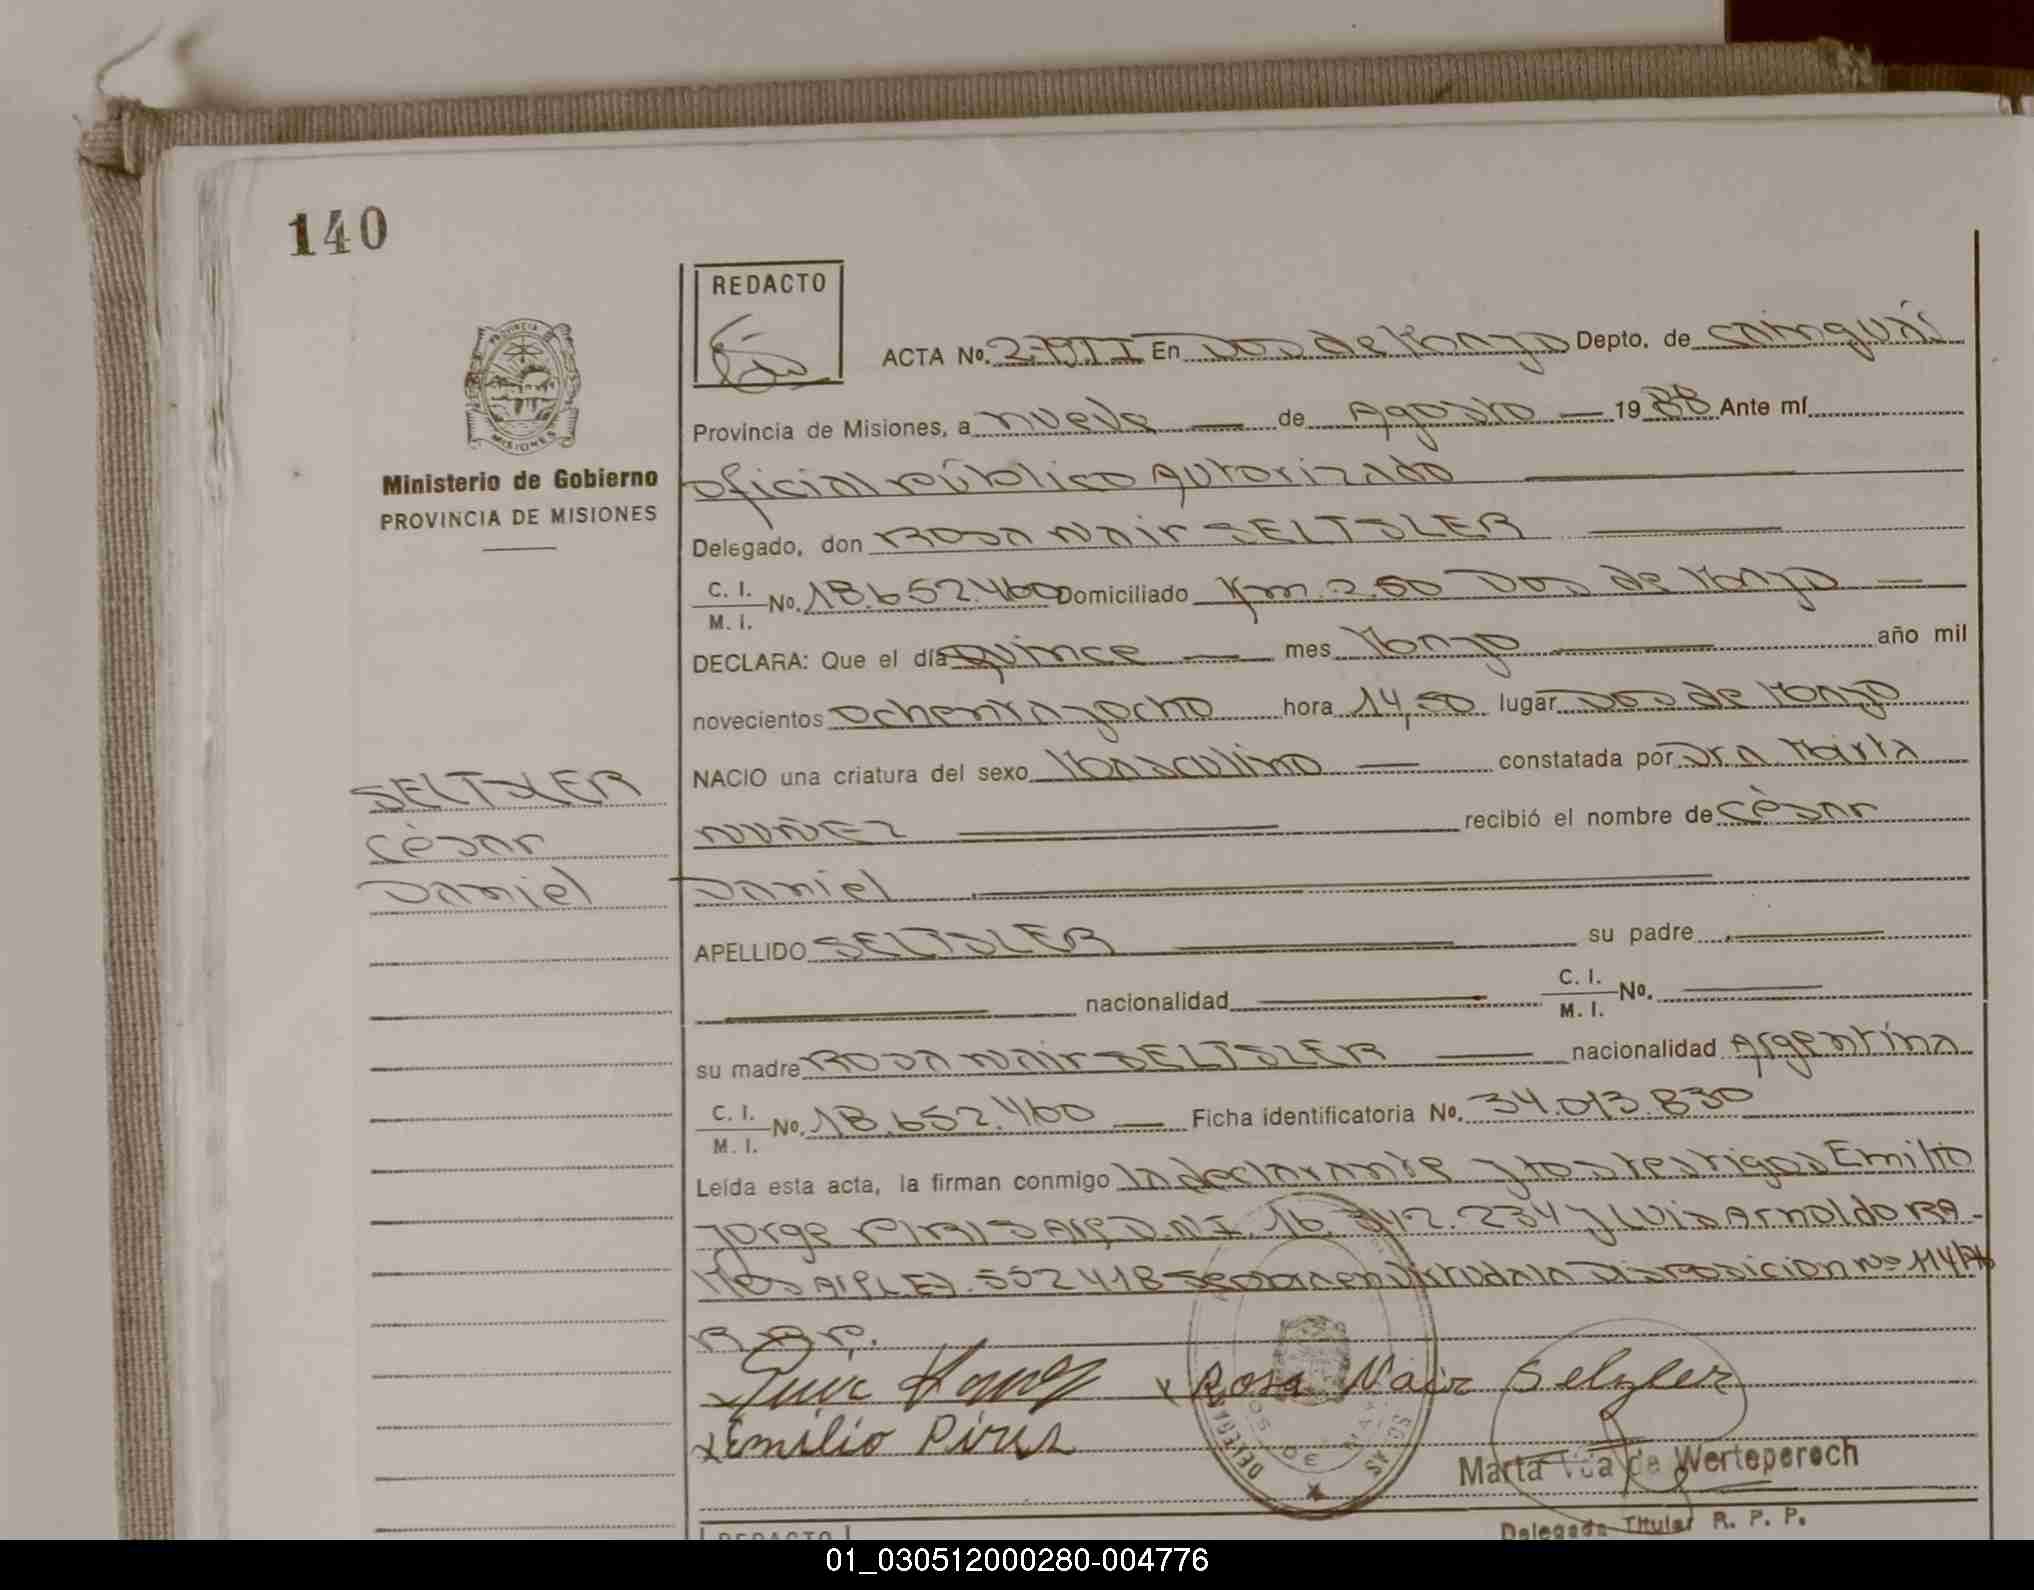 140
REDACTO
PROVINCIA
MISIONES
Ministerio de Gobierno
PROVINCIA DE MISIONES
ACTA No. 279 II En Dos de Mayo Depto. de Cainguás
Provincia de Misiones, a nueve de Agosto 1988 Ante mí
Oficial Público Autorizado
Delegado, don ROSA Nair SELTSLER
C. I.
M. I. No. 18.652.460 Domiciliado Km. 2.50 Dos de Mayo
DECLARA: Que el día quince mes Mayo año mil
novecientos ochenta y ocho hora 14,50 lugar Dos de Mayo
NACIO una criatura del sexo Masculino constatada por Dra Mirta
NUÑEZ recibió el nombre de Cèsar
Daniel
APELLIDO SELTSLER su padre
nacionalidad C. I.
M. I. No.
su madre ROSA Nair SELTSLER nacionalidad Argentina
C. I.
M. I. No. 18.652.460 Ficha identificatoria No. 34.013.830
Leída esta acta, la firman conmigo la declarante y los testigos Emilio
Jorge PIRIS Arg D.N.I. 16.342.234 y Luis Arnoldo RA-
MOS Arg L.E. 552 418 Disposicion No 114/
R.P.P.
SELTSLER
Cèsar
Daniel
Rosa Nair Selzler
Emilio Piris
DELEGA
DOS DE MAYO
Marta de Werteperoch
Delegada Titular R. P. P.
REDACTO
01_030512000280-004776